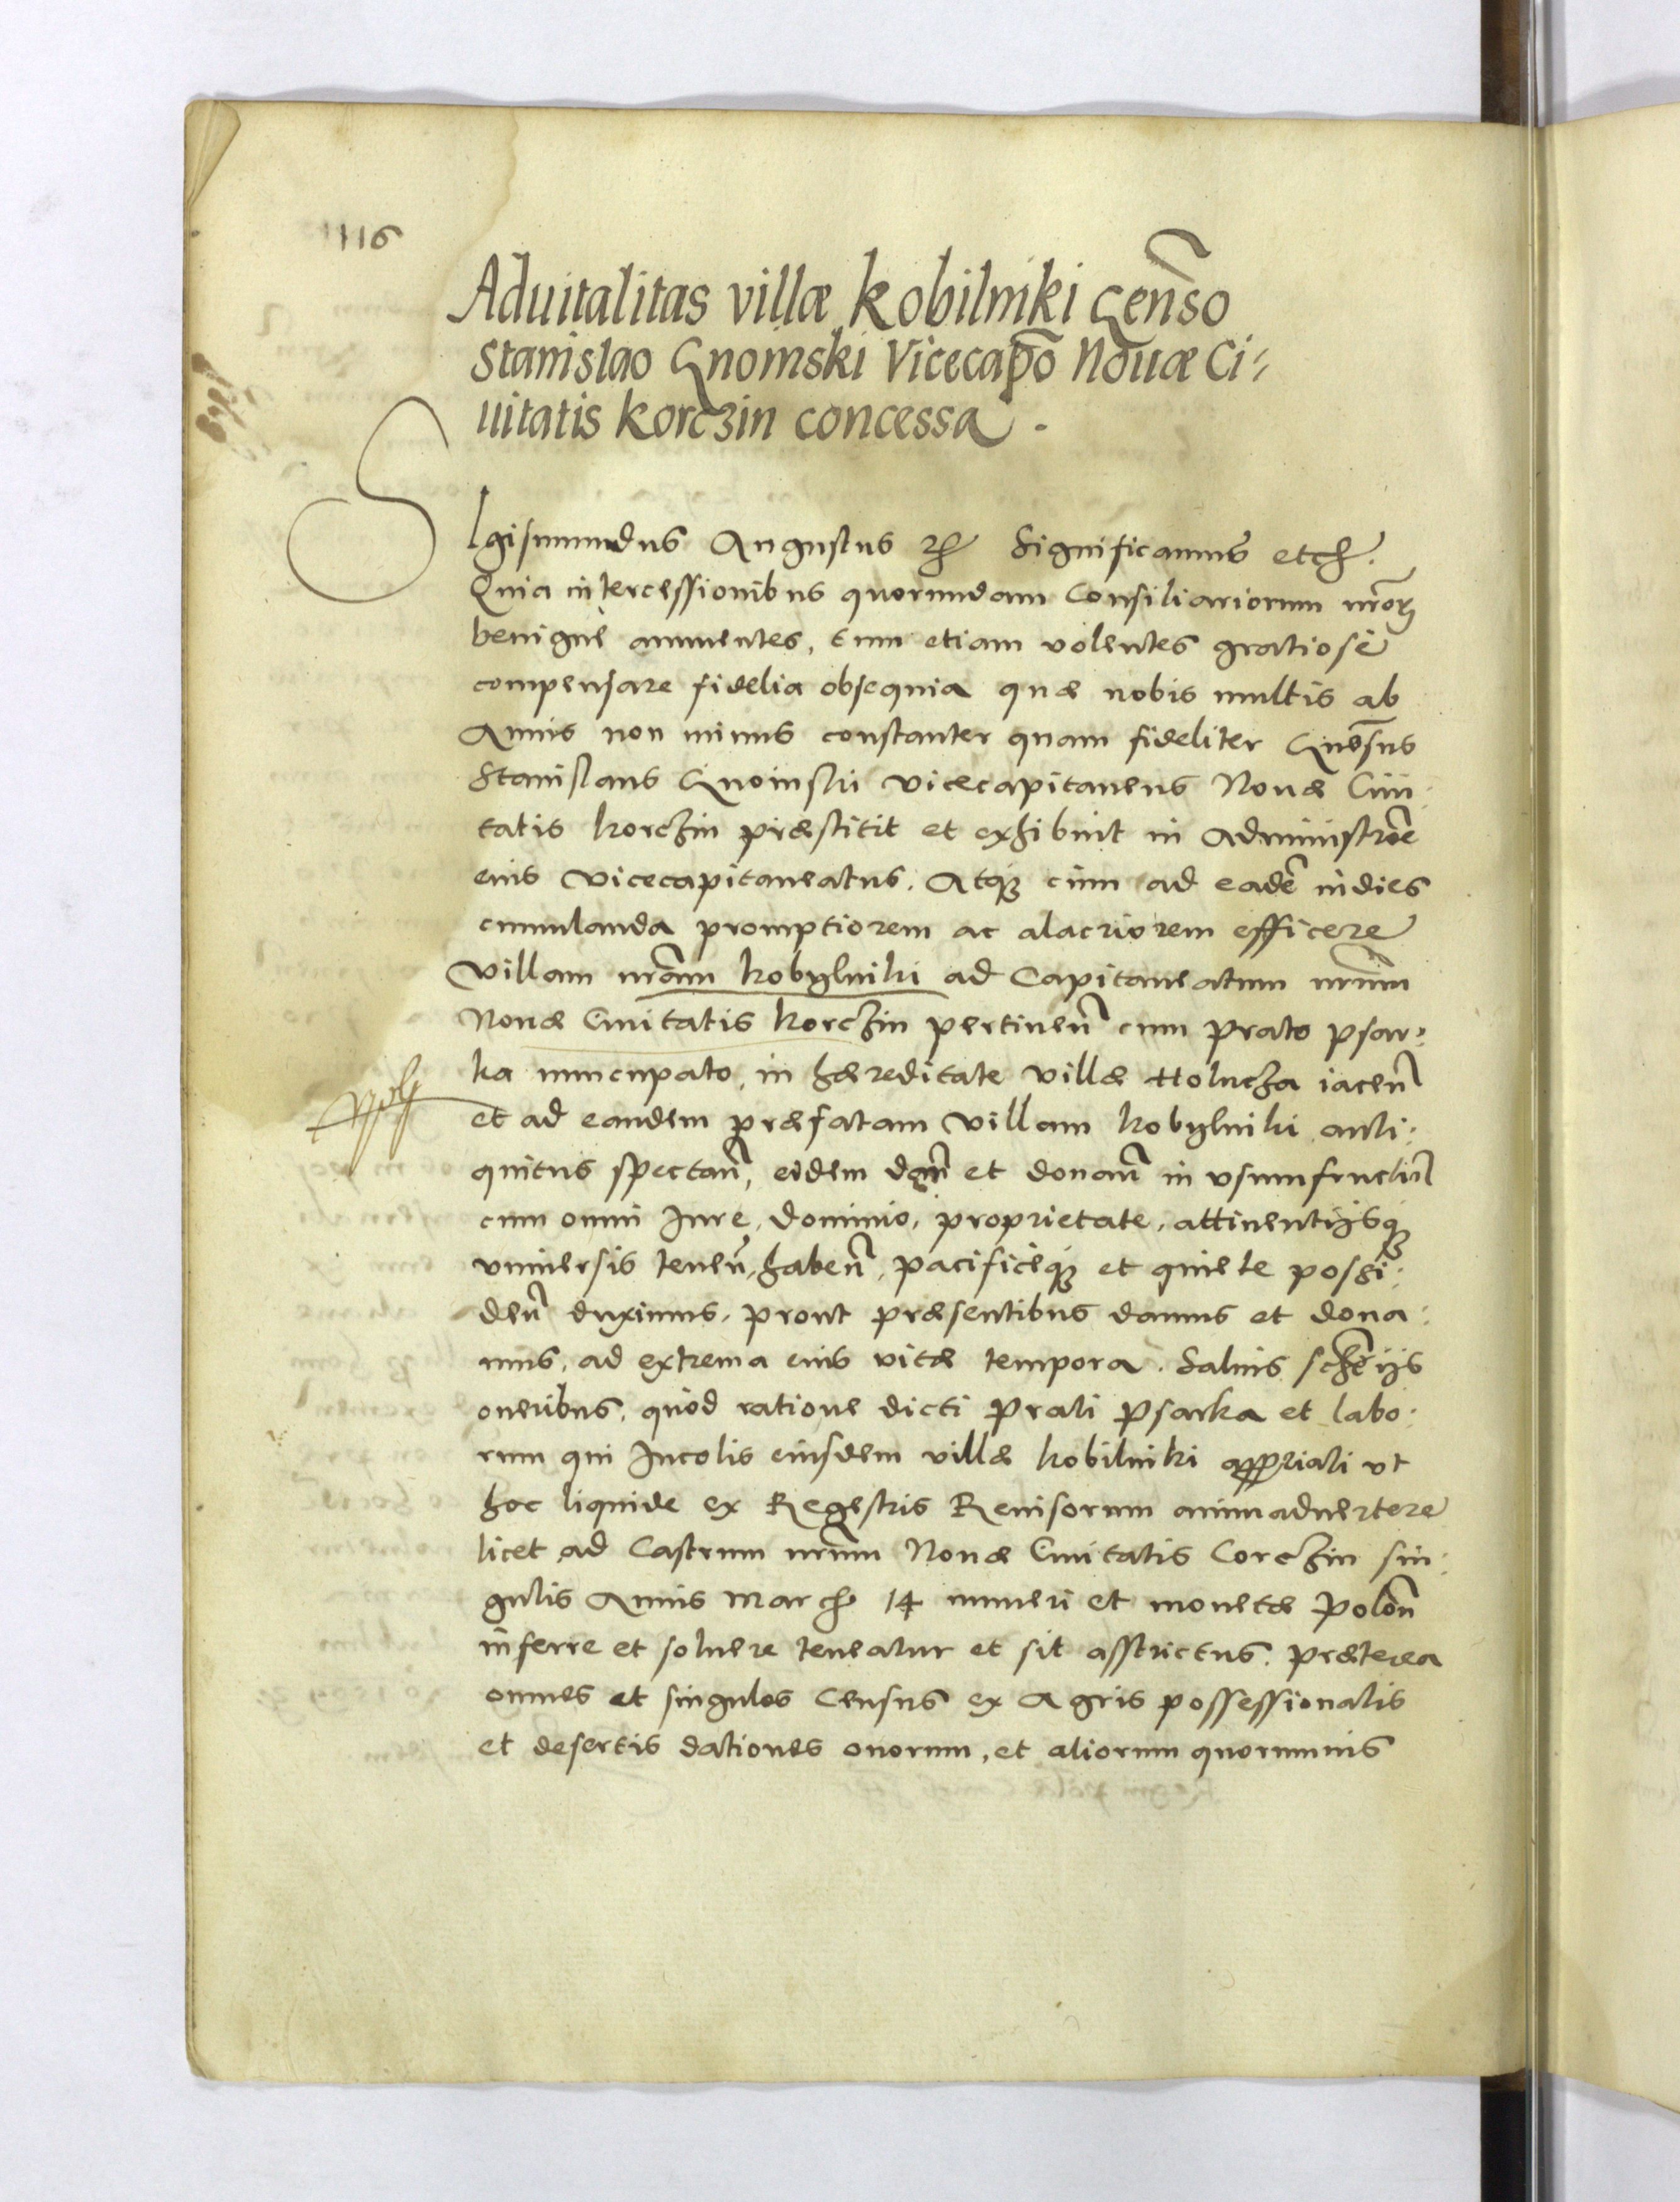 116
Aduitalitas villæ Kobilniki Gen̄so
Stanislao Gnoinski Vicecap̄o Nouæ Ci=
uitatis Korczin concessa.
SIgismundus Augustus etc Significamus etc.
Quia intercessionibus quorundam Consiliariorum nr̄oꝝ
benigne annuentes, Cum etiam volentes gratiose
compensare fidelia obsequia quæ nobis multis ab
Annis non minus constanter quam fideliter Gnōsus
Stanislaus Gnoinski vicecapitaneus Nouæ Ciui:
tatis Korczin præstitit et exhibuit in Administrōe
eius vicecapitaneatus. Atqꝫ eum ad eadē indies
cumulanda promptiorem ac alacriorem efficere
Villam nr̄am Kobylniki ad Capitaneatum nr̄um
Nouæ Ciuitatis Korczin pertineñ cum prato psar:
ka nuncupato, in hæreditate villæ Holucza iaceñ
et ad eandem præfatam villam Kobylniki anti:
quitus spectañ, eidem dañ et donañ in vsumfructū
cum omni Jure, dominio, proprietate, attinentijsqꝫ
vniuersis teneñ, habeñ, pacificeqꝫ et quiete possi:
deñ duximus, prout præsentibus damus et dona:
mus, ad extrema eius vitæ tempora. Saluis
oneribus, quod ratione dicti Prati Psarka et labo:
rum qui Incolis eiusdem villæ Kobilniki appriati vt
hoc liquide ex Regestris Reuisorum animaduertere
licet ad Castrum nr̄um Nouæ Ciuitatis Corczin sin:
gulis Annis March 14 numeri et monetæ Poloñ
inferre et soluere teneatur et sit asstrictus. Præterea
omnes et singulos Census ex Agris possessionatis
et desertis dationes ouorum, et aliorum quorumuis